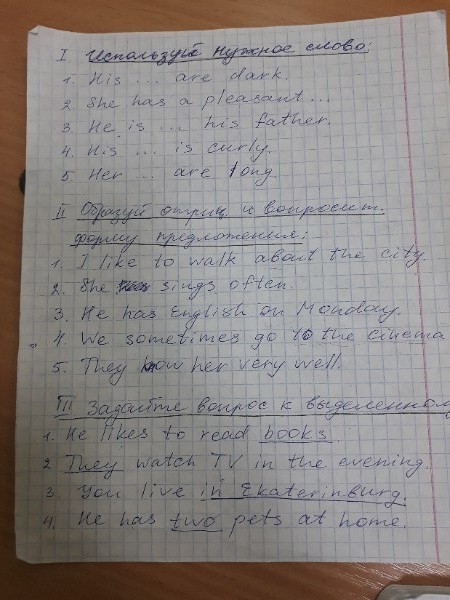 I Используй нужное слово:
1. His ... are dark.
2. She has a pleasant ...
3. He is ... his father.
4. His ... is curly.
5. Her ... are long
II Образуй отриц. и вопросит.
форму предложения:
1. I like to walk about the city.
2. She sings often.
3. He has English on Monday.
4. We sometimes go to the cinema
5. They know her very well.
III Задайте вопрос к выделенном
1. He likes to read books.
2. They watch TV in the evening.
3. You live in Ekaterinburg.
4. He has two pets at home.